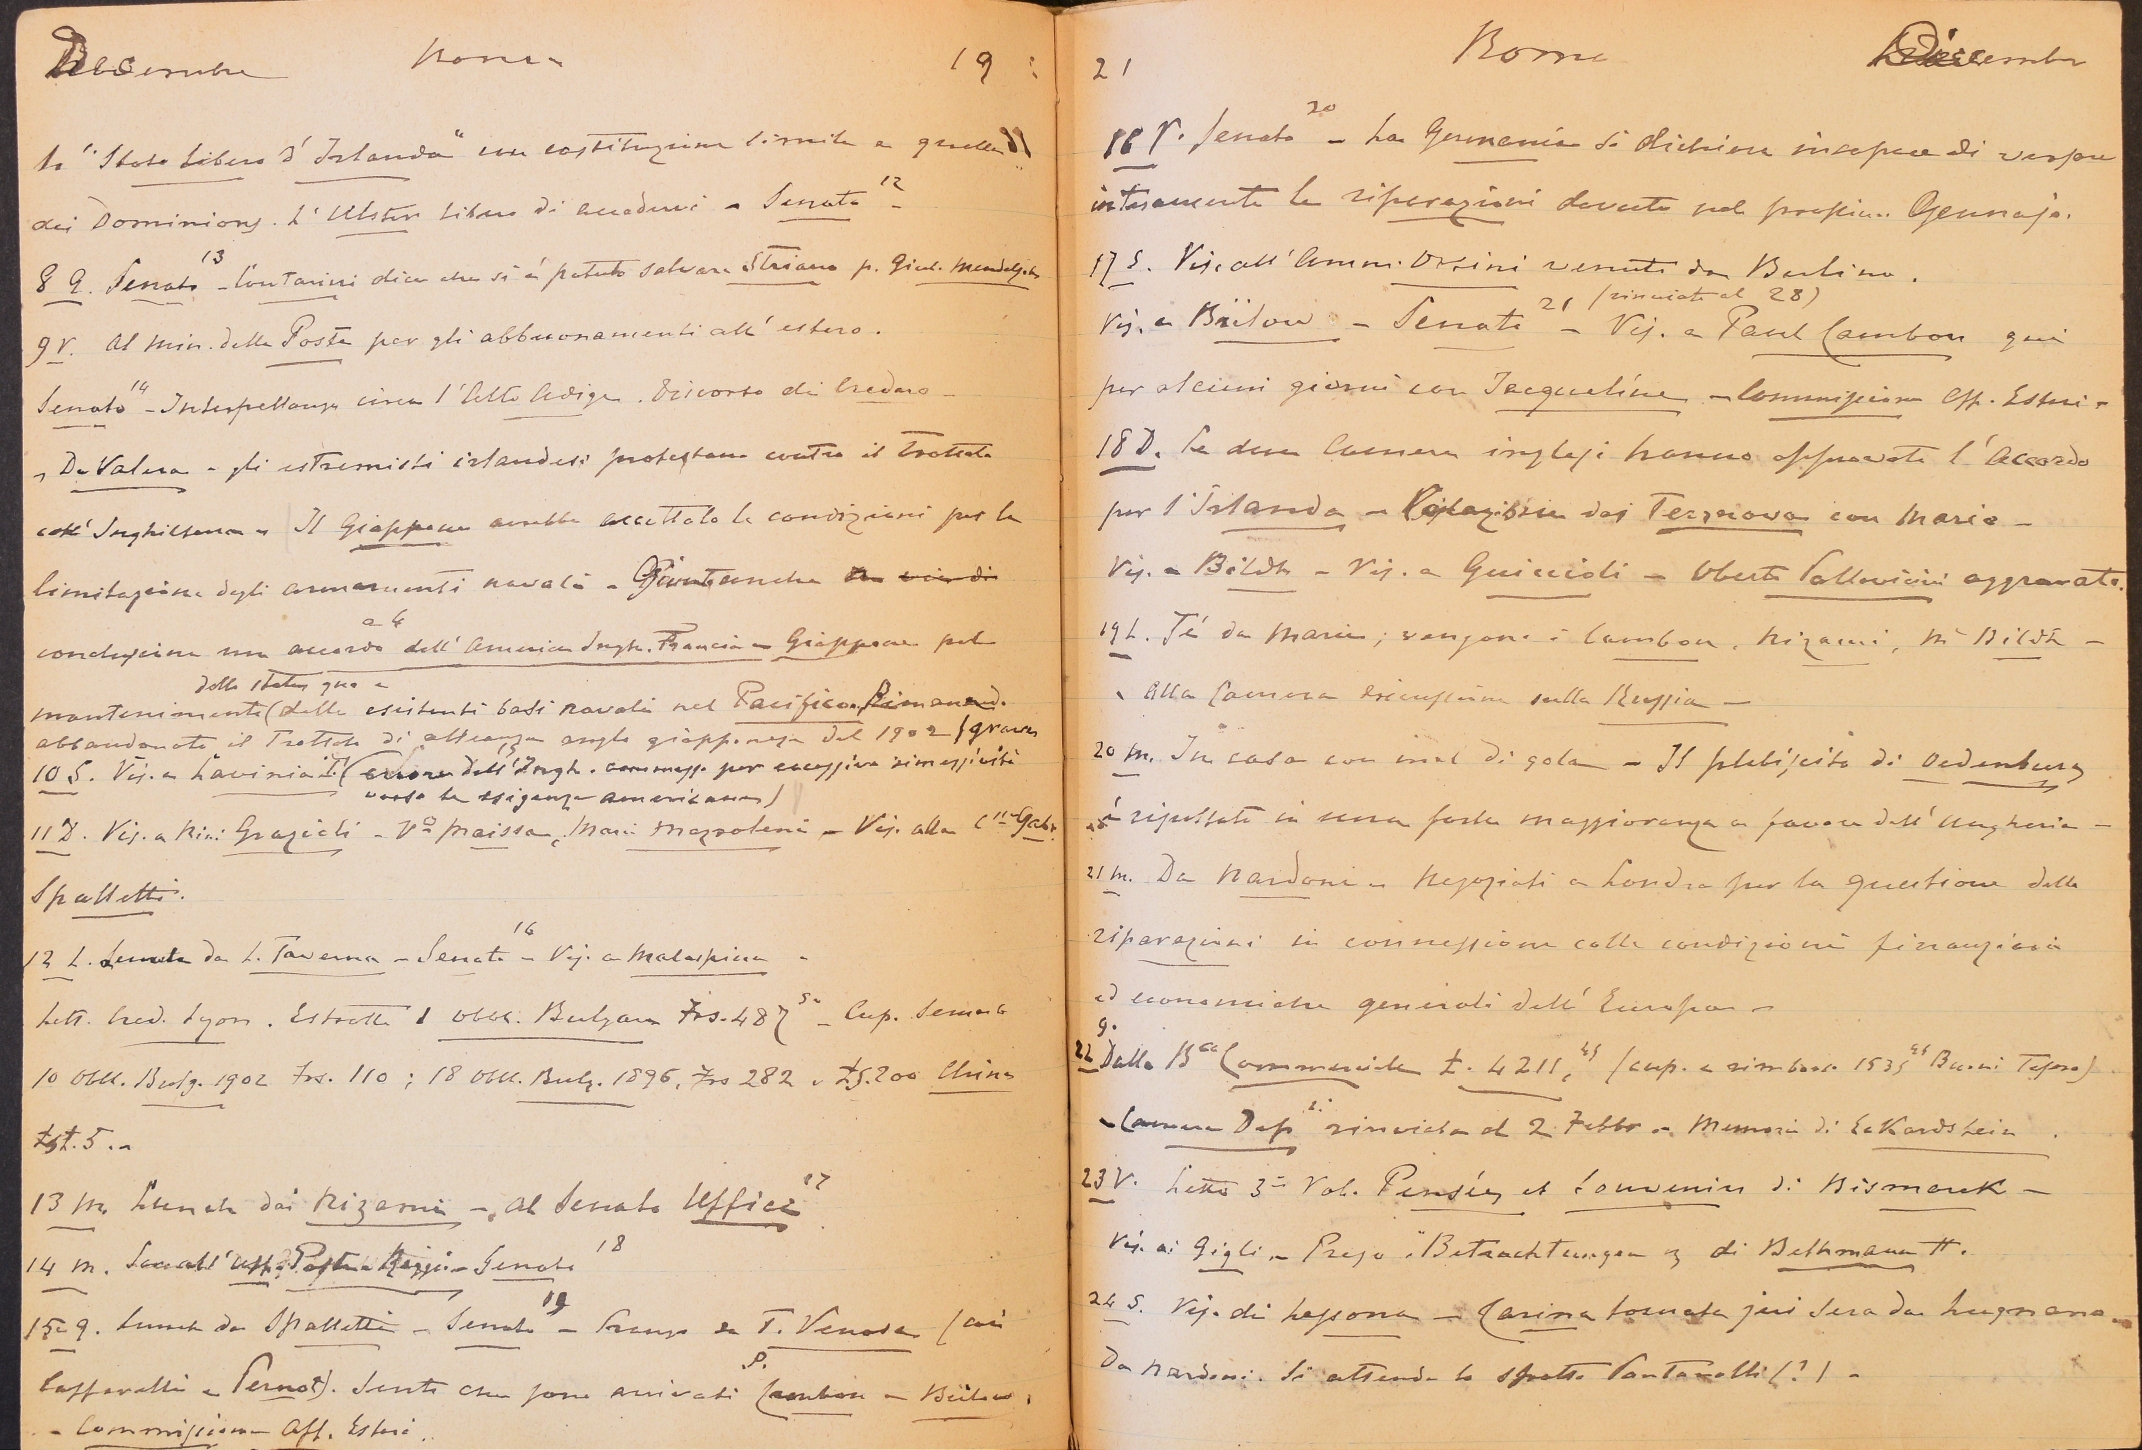 Decembre Roma 19
lo "Stato libero d'Irlanda" con costituzione simile a quella
dei Dominions. L'Ulster libero di accedervi - Senato 12 -
8 G. Senato 13 - Contarini dice che si è potuto salvare Striano p. Giul. Mendelssohn
9 V. Al Min. delle Poste per gli abbuonamenti all'estero.
Senato 14 - Interpellanza circa l'Alto Adige. Discorso di Credaro -
- De Valera e gli estremisti irlandesi protestano contro il trattato
coll'Inghilterra - Il Giappone avrebbe accettato le condizioni per la
limitazione degli armamenti navali -
conclusione un accordo a 4 dell'America Ingh. Francia e Giappone pel
mantenimento (dello statu quo e delle esistenti basi navali nel Pacifico. Rimanend.
abbandonato il Trattato di alleanza anglo giapponese del 1902 (grave
10 S. Vis. a Lavinia T. errore dell'Ingh. commesso per eccessiva remissività
verso le esigenze americane)
11 D. Vis. a Grazioli - Maissa, Marie Mazzoleni - Vis. alla C.ssa Gabr.
Spalletti.
12 L. Lunch da L. Taverna - Senato 16 - Vis. a Malaspina -
Lett. Cred. Lyon. Estratte 1 Obbl. Bulgare Frs. 487 50 - Cup. Semest.
10 Obbl. Bulg. 1902 Frs. 110; 18 Obbl. Bulg. 1896, Frs 282 e £s. 200 China
£st. 5. -
13 M. Lunch dai Nizami - al Senato Uffici 17
14 M. Senato 18
15 G. Lunch da Spalletti - Senato 19 - Pranzo da T. Venosa (coi
Caffarelli e Pernot). Sento che sono arrivati P. Cambon e Bülow.
- Commissione Aff. Esteri.
21 Roma Decembre
16 V. Senato 20 - La Germania si dichiara incapace di versare
interamente le riparazioni dovute nel prossimo Gennajo.
17 S. Vis. all'Amm. Orsini venuto da Berlino.
Vis. a Bülow - Senato 21 (rinviato al 28) - Vis. a Paul Cambon qui
per alcuni giorni con Jacqueline - Commissione Aff. Esteri -
18 D. Le due Camere inglesi hanno approvato l'Accordo
per l'Irlanda - Colazione dai Terranova con Maria -
Vis. a Bildt - Vis. a Guiccioli - Uberto Pallavicini aggravato.
19 L. Té da Maria; vengono i Cambon, Nizami, Bildt -
- Alla Camera discussione sulla Russia -
20 M. In casa con mal di gola - Il plebiscito di Oedenburg
è risultato in una forte maggioranza a favore dell'Ungheria -
21 M. Da Nardoni - Negoziati a Londra per la questione delle
riparazioni in connessione colle condizioni finanziarie
ed economiche generali dell'Europa -
22 G. Dalla B.ca Commerciale £. 4211,45 (cup. e rimbors. 1535 Buoni Tesoro)
- Camera Dep.i rinviata al 2 Febbr. - Memorie di Eckardstein.
23 V. Letto 3º Vol. Pensées et Souvenirs di Bismarck -
Vis. ai Gigli - Preso "Betrachtungen" di Bethmann H.
24 S. Vis. di Lessona - Carina tornata jeri sera da Lugnano.
Da Nardoni. Si attende lo sfratto Pantanelli (?) -